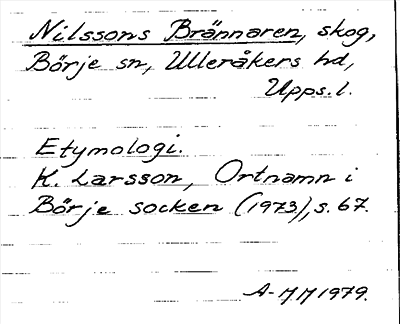 Nilssons Brännaren, skog,
Börje sn, Ulleråkers hd,
Upps. l.
Etymologi.
K. Larsson, Ortnamn i
Börje socken (1973), s. 67.
A-MM 1979.